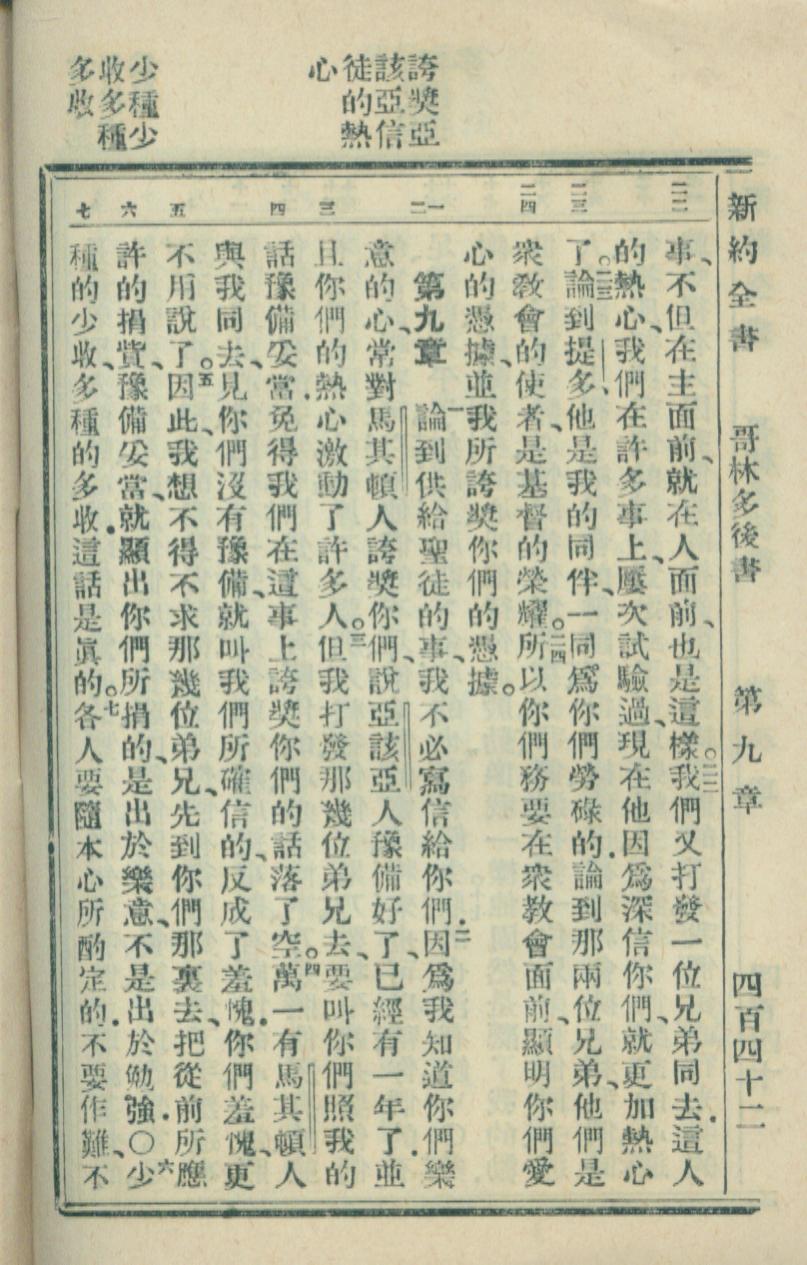 新約全書 哥林多後書 第九章 四百四十二
誇獎亞
該亞信
徒的熱
心
少種少
收多種
多收
二二
二三
二四
一
二
三
四
五
六
七
事、不但在主面前、就在人面前、也是這樣。二二我們又打發一位兄弟同去.這人
的熱心、我們在許多事上、屢次試驗過、現在他因爲深信你們、就更加熱心
了。二三論到提多、他是我的同伴、一同爲你們勞碌的.論到那兩位兄弟、他們是
衆教會的使者、是基督的榮耀。二四所以你們務要在衆教會面前、顯明你們愛
心的憑據、並我所誇獎你們的憑據。
第九章 一論到供給聖徒的事、我不必寫信給你們.二因爲我知道你們樂
意的心、常對馬其頓人誇獎你們、說亞該亞人豫備好了、已經有一年了.並
且你們的熱心激動了許多人。三但我打發那幾位弟兄去、要叫你們照我的
話豫備妥當.免得我們在這事上誇獎你們的話落了空。四萬一有馬其頓人
與我同去、見你們沒有豫備、就叫我們所確信的、反成了羞愧.你們羞愧、更
不用說了。五因此、我想不得不求那幾位弟兄、先到你們那裏去、把從前所應
許的捐貲、豫備妥當、就顯出你們所捐的、是出於樂意、不是出於勉強.〇六少
種的少收、多種的多收.這話是眞的。七各人要隨本心所酌定的.不要作難、不